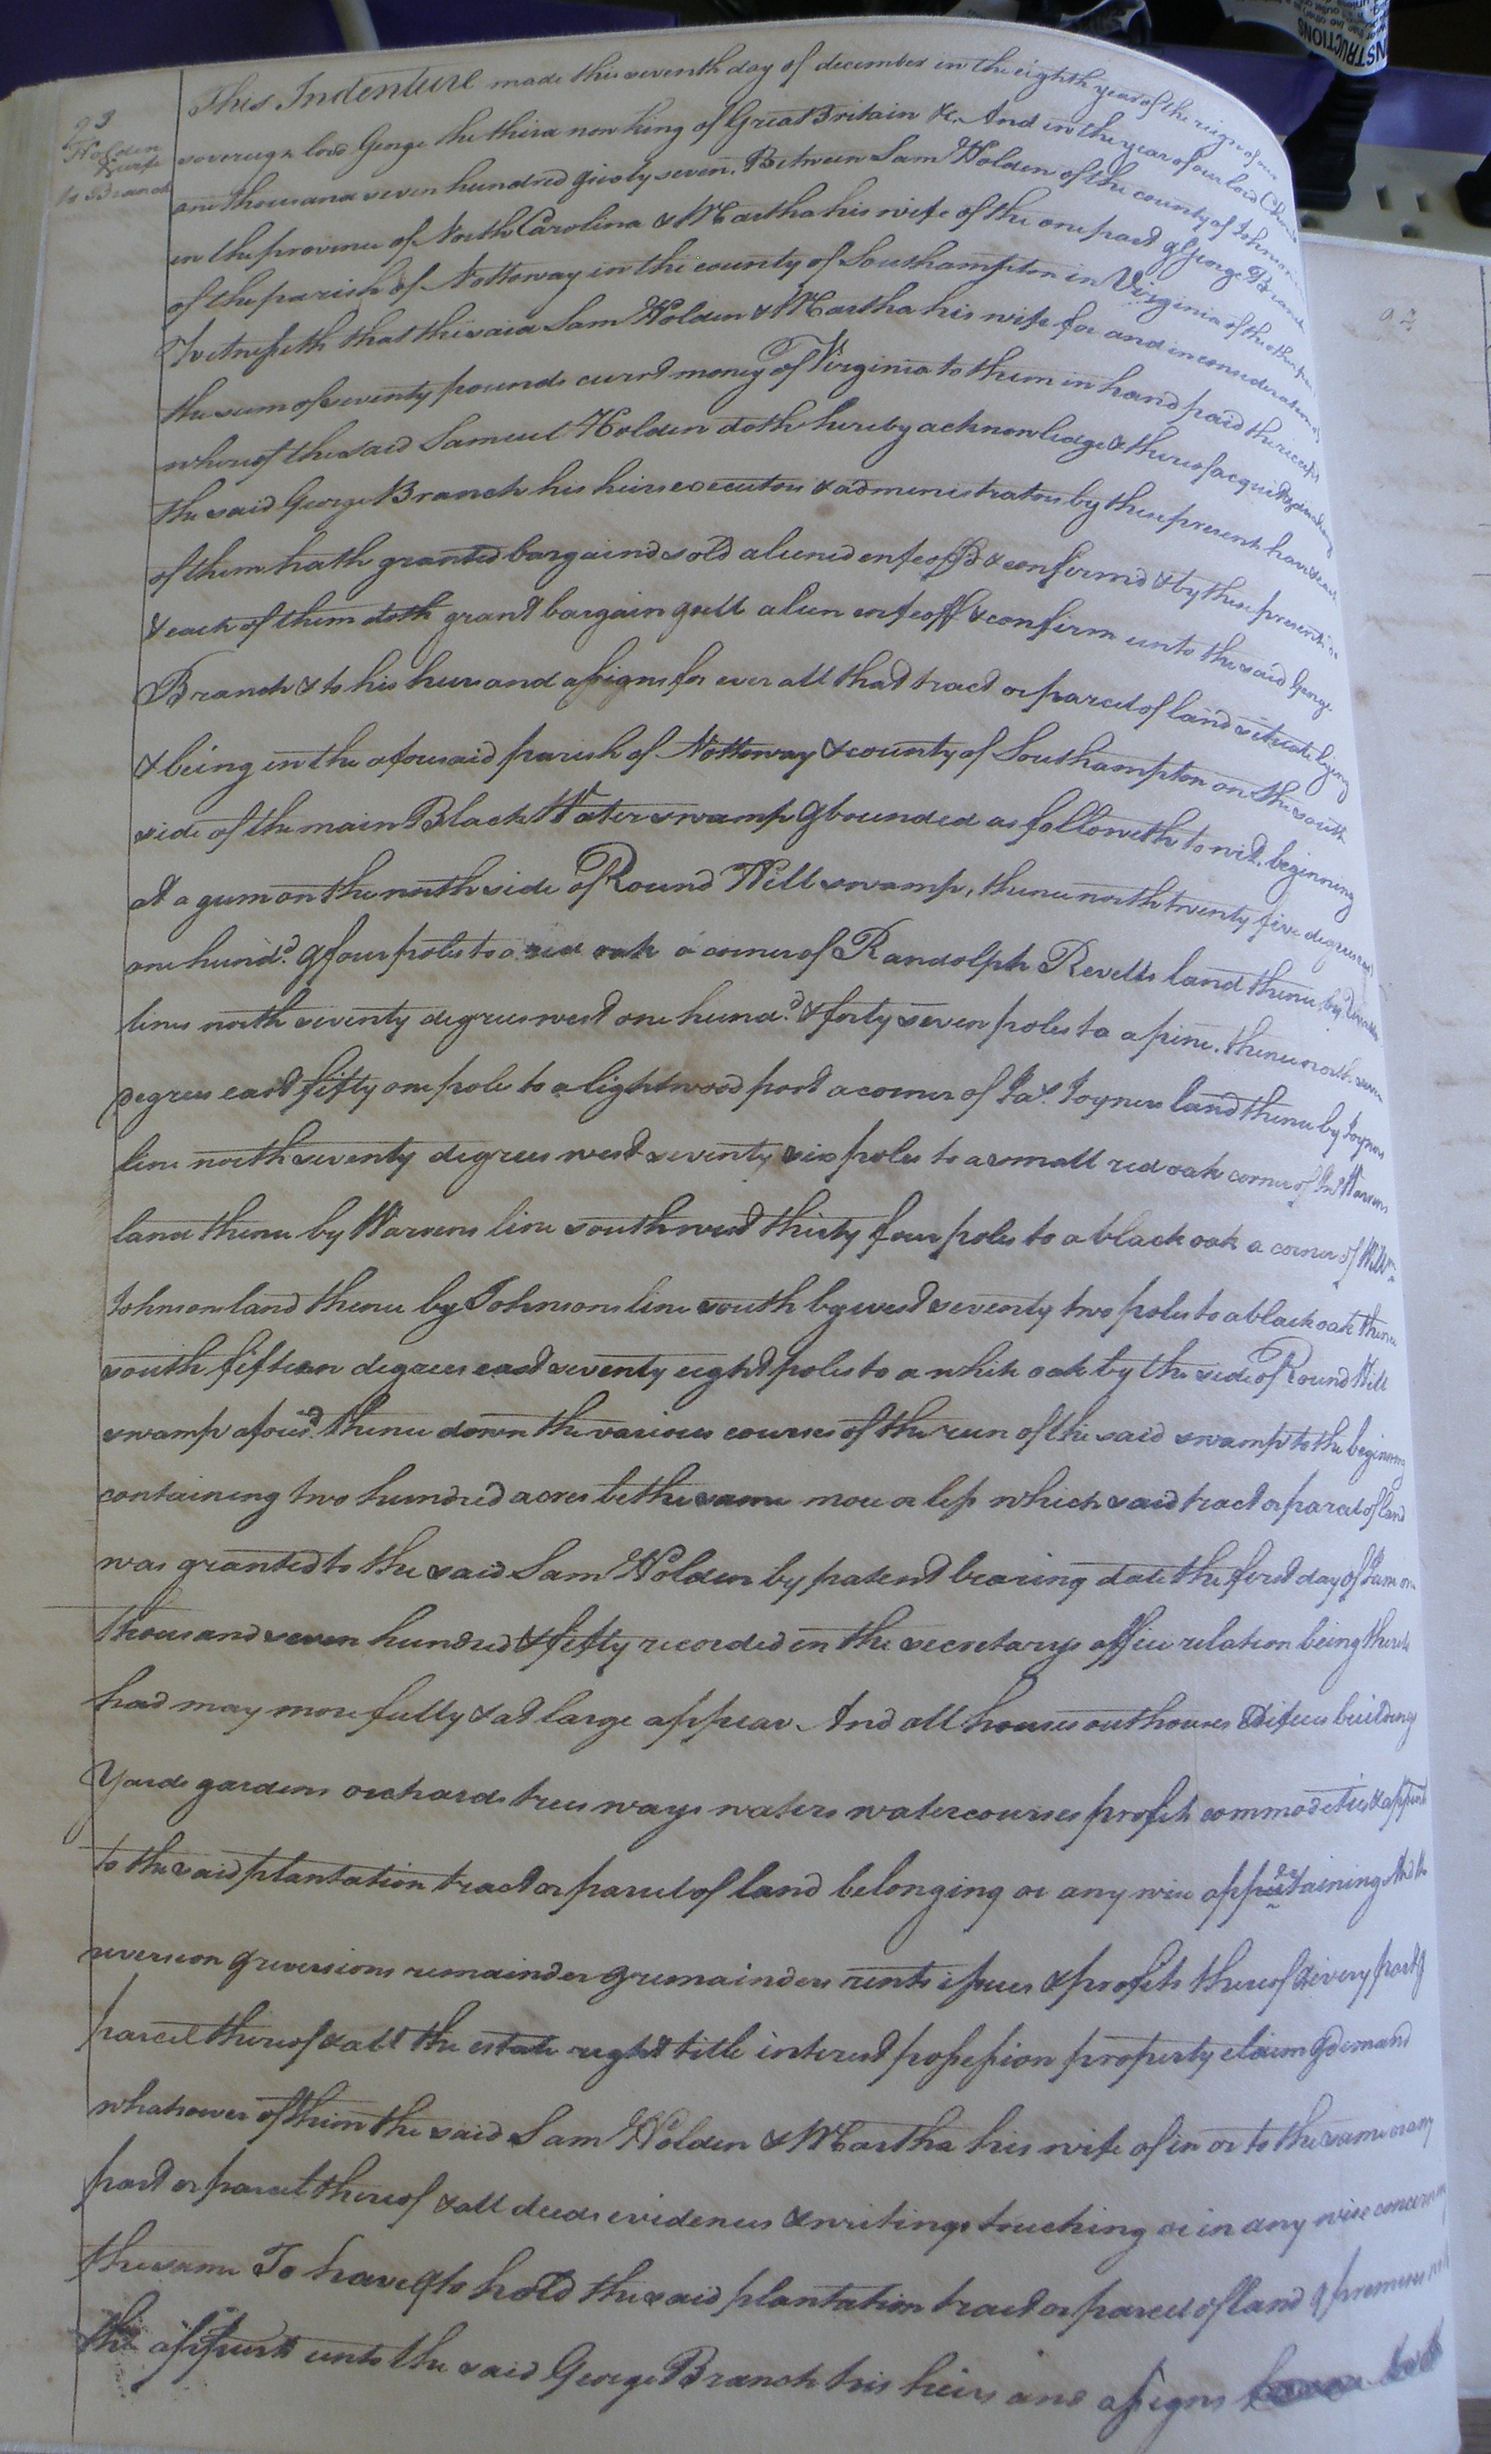 23
Holden
& wife
to Branch
This Indenture made this seventh day of december in the eighth year of the reign of our
sovereign lord George the third now king of Great Britain &c. And in the year of our lord Christ
one thousand seven hundred & sixty seven. Between Sam Holden of the county of Johnson
in the province of North Carolina & Martha his wife of the one part & George Branch
of the parish of Nottoway in the county of Southampton in Virginia of the other part
Witnesseth that the said Sam Holden & Martha his wife for and in consideration of
the sum of seventy pounds currt money of Virginia to them in hand paid the receipt
whereof the said Samuel Holden doth hereby acknowledge & thereof acquit & discharge
the said George Branch his heirs executors & administrators by these present have & each
of them hath granted bargaind sold aliened enfeoffd & confirmd & by these presents do
& each of them doth grant bargain & sell alien enfeoff & confirm unto the said George
Branch & to his heirs and assigns for ever all that tract or parcel of land situate lying
& being in the aforesaid parish of Nottoway & county of Southampton on the south
side of the main Black Water swamp & bounded as followeth to wit, beginning
at a gum on the north side of Round Hill swamp, thence north twenty five degrees east
one hund.d & four poles to a red oak a corner of Randolph Revells land thence by
lines north seventy degrees west one hund.d & forty seven poles to a pine. thence north seven
degrees east fifty one pole to a lightwood post a corner of Jas. Joyners land thence by Joyners
line north seventy degrees west seventy six poles to a small red oak corner of Warrens
land thence by Warrens line south west thirty four poles to a black oak a corner of Willm.
Johnsons land thence by Johnsons line south by west seventy two poles to a black oak thence
south fifteen degrees east seventy eight poles to a white oak by the side of Round Hill
swamp afores.d thence down the various courses of the run of the said swamp to the beginning
containing two hundred acres be the same more or less which said tract or parcel of land
was granted to the said Sam Holden by patent bearing date the first day of one
thousand seven hundred & fifty recorded in the secretarys office relation being thereto
had may more fully & at large appear. And all houses outhouses Edifices buildings
yards gardens orchards trees ways waters watercourses profits commodeties & appurts
to the said plantation tract or parcel of land belonging or any wise appertaining And the
reversion & reversions remainder & remainders rents issues & profits thereof & every part &
parcel thereof & all the estate right title interest possession property claim & demand
whatsoever of them the said Sam Holden & Martha his wife of in or to the same or any
part or parcel thereof & all deeds evidences & writings touching or in any wise concerning
the same To have & to hold the said plantation tract or parcel of land & premises with
the appurts unto the said George Branch his heirs and assigns
INSTRUCTIONS